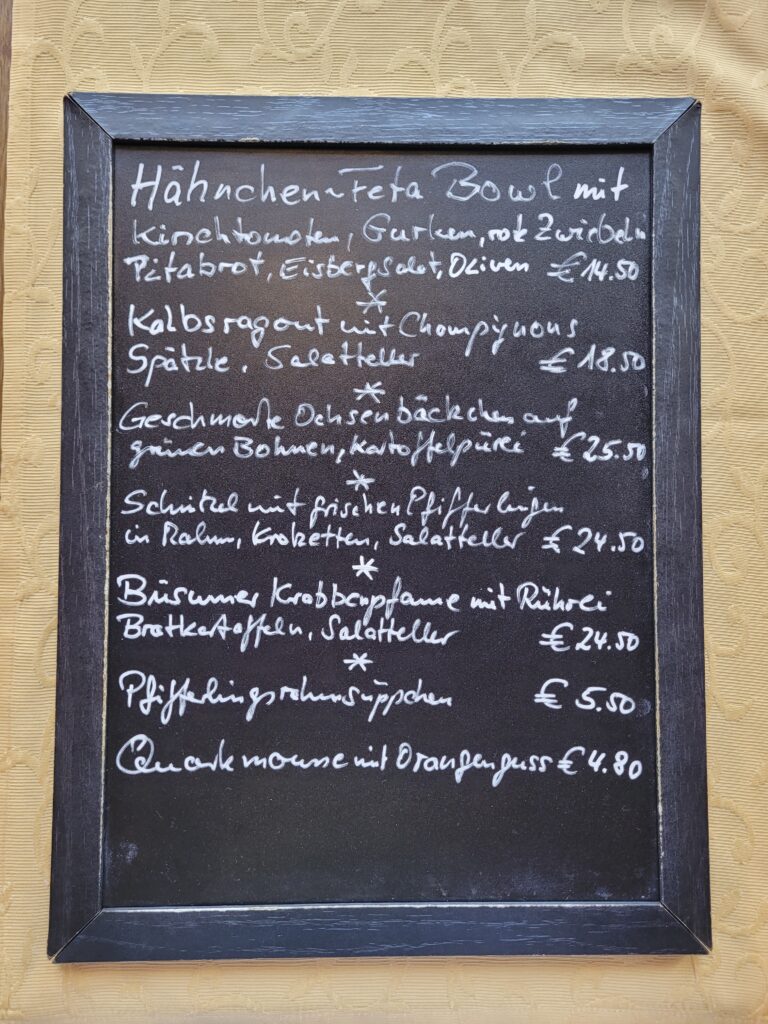 Hähnchen-Feta Bowl mit
Kirschtomaten, Gurken, rote Zwiebeln
Pitabrot, Eisbergsalat, Oliven € 14.50
*
Kalbsragout mit Champignons
Spätzle, Salatteller € 18.50
*
Geschmorte Ochsenbäckchen auf
grünen Bohnen, Kartoffelpüree € 25.50
*
Schnitzel mit frischen Pfifferlingen
in Rahm, Kroketten, Salatteller € 24.50
*
Büsumer Krabbenpfanne mit Rührei
Bratkartoffeln, Salatteller € 24.50
*
Pfifferlingsrahmsüppchen € 5.50
Quarkmousse mit Orangenguss € 4.80